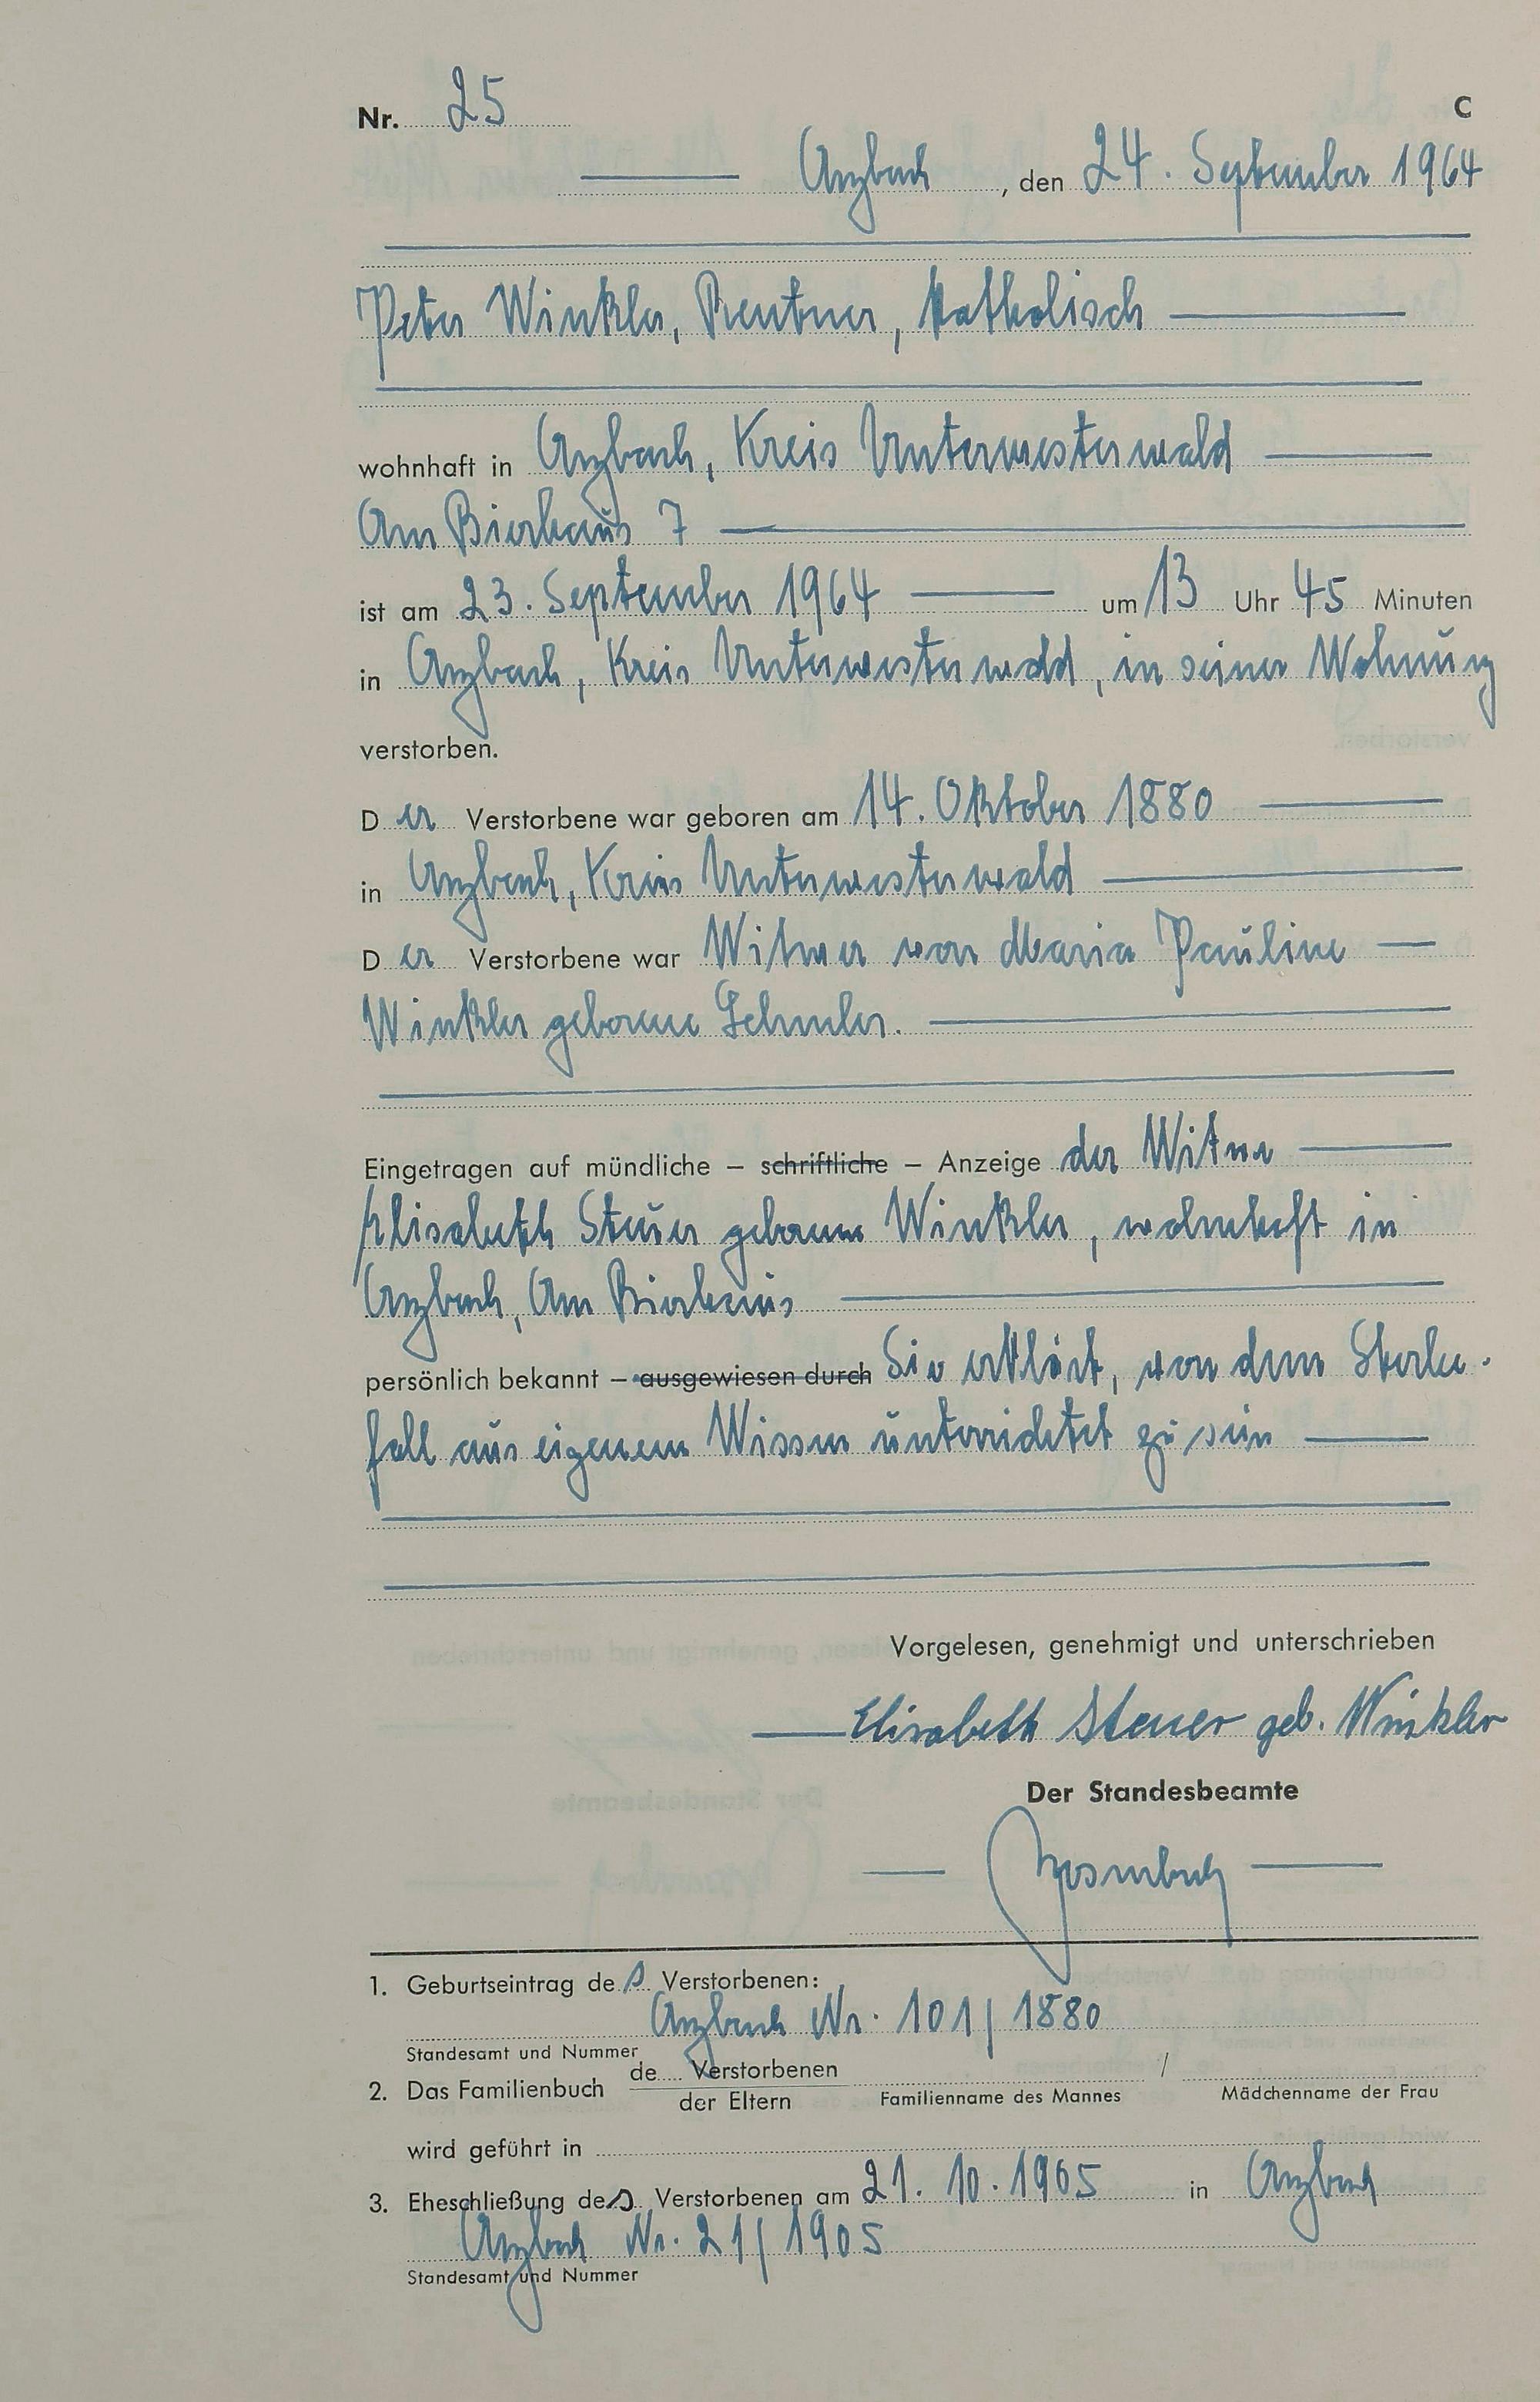 Nr. 25 C
Arzbach, den 24. September 1964
Peter Winkler, Rentner, katholisch
wohnhaft in Arzbach, Kreis Unterwesterwald
Am Bierhaus 7
ist am 23. September 1964 um 13 Uhr 45 Minuten
in Arzbach, Kreis Unterwesterwald, in seiner Wohnung
verstorben.
Der Verstorbene war geboren am 14. Oktober 1880
in Arzbach, Kreis Unterwesterwald
Der Verstorbene war Witwer von Maria Pauline
Winkler geborene
Eingetragen auf mündliche – schriftliche – Anzeige der Witwe
Elisabeth Steuer geborene Winkler, wohnhaft in
Arzbach, Am Bierhaus
persönlich bekannt – ausgewiesen durch Sie erklärt, von dem Sterbe-
fall aus eigenem Wissen unterrichtet zu sein
Vorgelesen, genehmigt und unterschrieben
Elisabeth Steuer geb. Winkler
Der Standesbeamte
1. Geburtseintrag des Verstorbenen:
Arzbach Nr. 101/1880
Standesamt und Nummer
2. Das Familienbuch de Verstorbenen /
der Eltern Familienname des Mannes Mädchenname der Frau
wird geführt in
3. Eheschließung des Verstorbenen am 21. 10. 1905 in Arzbach
Arzbach Nr. 21/1905
Standesamt und Nummer